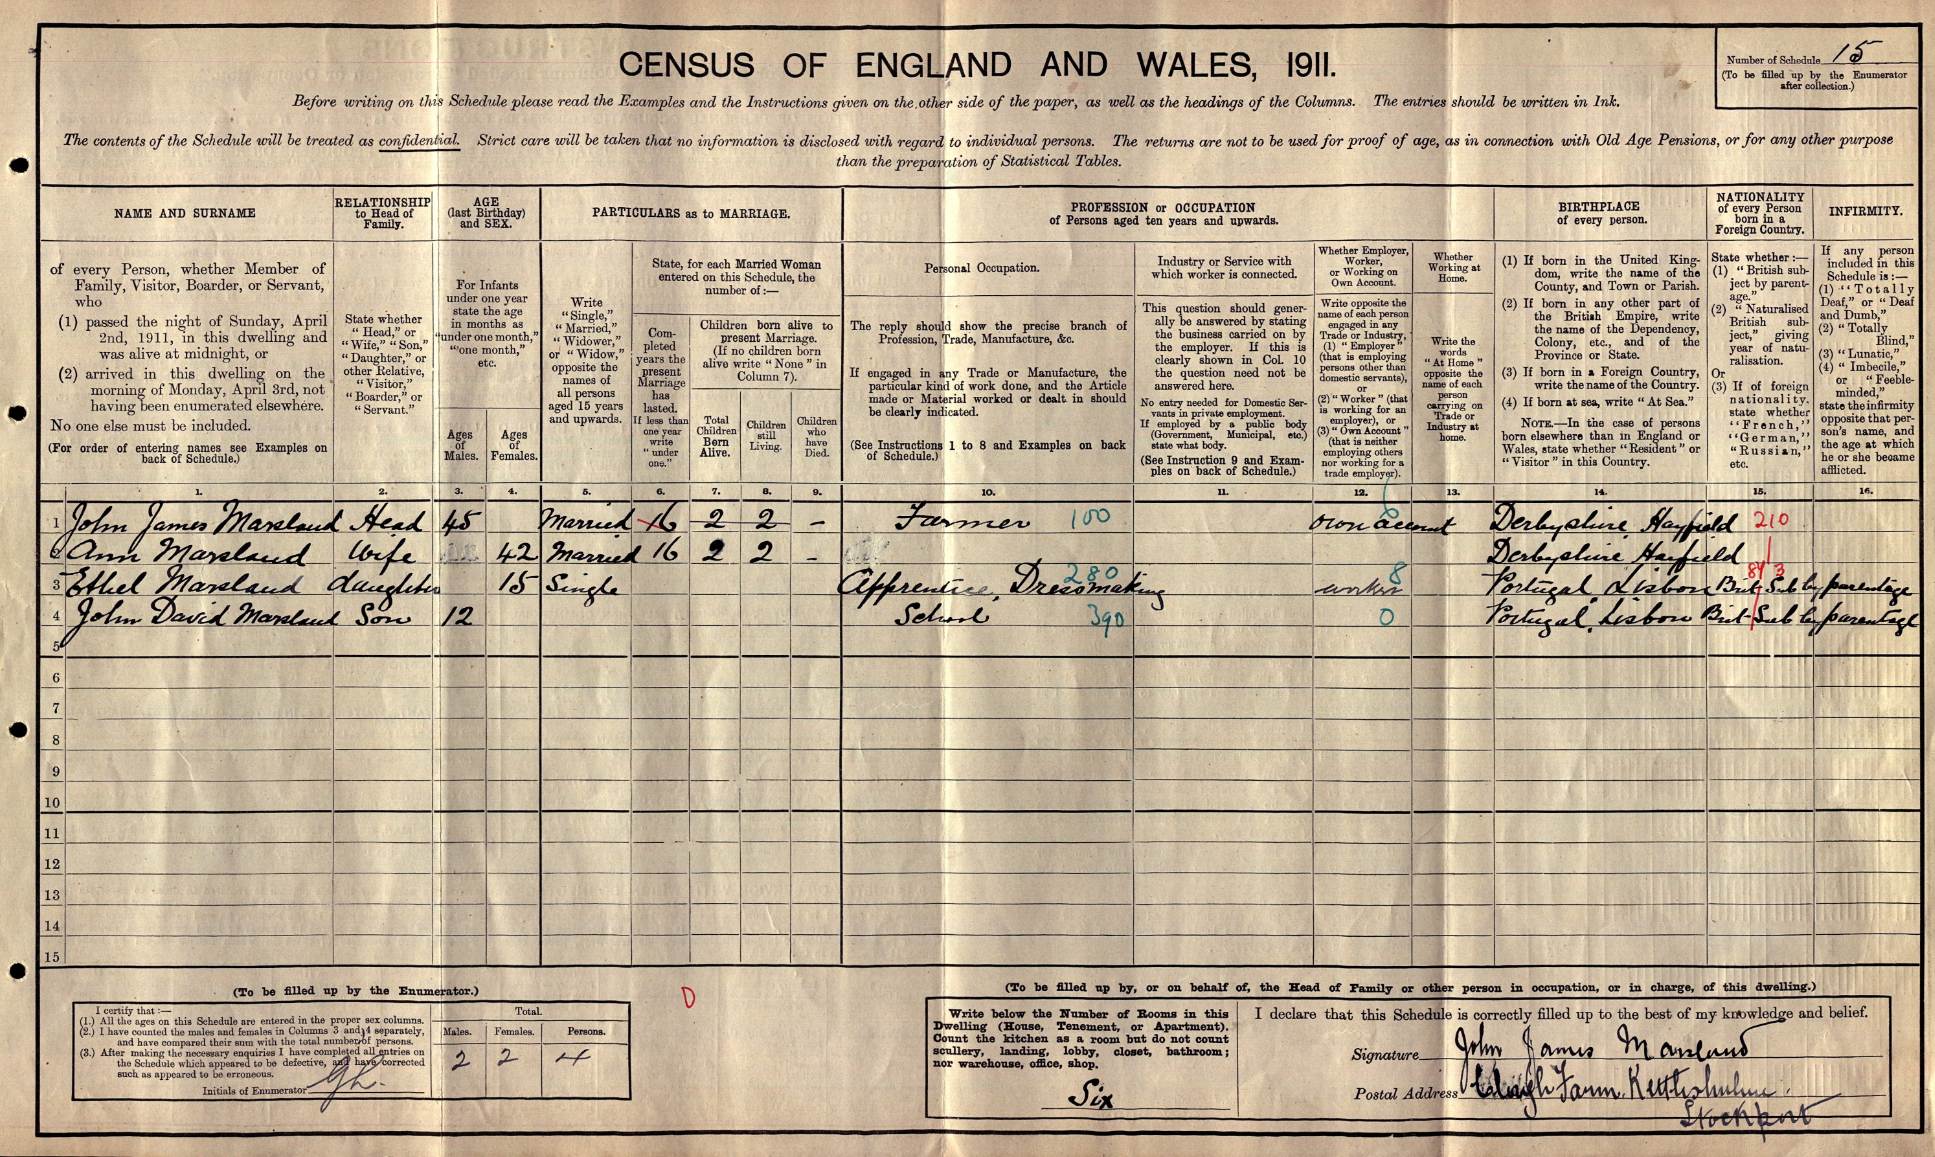 CENSUS OF ENGLAND AND WALES, 1911.
Number of Schedule 15
(To be filled up by the Enumerator
after collection.)
Before writing on this Schedule please read the Examples and the Instructions given on the other side of the paper, as well as the headings of the Columns. The entries should be written in Ink.
The contents of the Schedule will be treated as confidential. Strict care will be taken that no information is disclosed with regard to individual persons. The returns are not to be used for proof of age, as in connection with Old Age Pensions, or for any other purpose
than the preparation of Statistical Tables.
NAME AND SURNAME
of every Person, whether Member of
Family, Visitor, Boarder, or Servant,
who
(1) passed the night of Sunday, April
2nd, 1911, in this dwelling and
was alive at midnight, or
(2) arrived in this dwelling on the
morning of Monday, April 3rd, not
having been enumerated elsewhere.
No one else must be included.
(For order of entering names see Examples on
back of Schedule.)
RELATIONSHIP
to Head of
Family.
State whether
"Head," or
"Wife," "Son,"
"Daughter," or
other Relative,
"Visitor,"
"Boarder," or
"Servant."
AGE
(last Birthday)
and SEX.
For Infants
under one year
state the age
in months as
"under one month,"
"one month,"
etc.
Ages
of
Males.
Ages
of
Females.
PARTICULARS as to MARRIAGE.
Write
"Single,"
"Married,"
"Widower,"
or "Widow,"
opposite the
names of
all persons
aged 15 years
and upwards.
State, for each Married Woman
entered on this Schedule, the
number of:—
Com-
pleted
years the
present
Marriage
has
lasted.
If less than
one year
write
"under
one."
Children born alive to
present Marriage.
(If no children born
alive write "None" in
Column 7).
Total
Children
Born
Alive.
Children
still
Living.
Children
who
have
Died.
PROFESSION or OCCUPATION
of Persons aged ten years and upwards.
Personal Occupation.
The reply should show the precise branch of
Profession, Trade, Manufacture, &c.
If engaged in any Trade or Manufacture, the
particular kind of work done, and the Article
made or Material worked or dealt in should
be clearly indicated.
(See Instructions 1 to 8 and Examples on back
of Schedule.)
Industry or Service with
which worker is connected.
This question should gener-
ally be answered by stating
the business carried on by
the employer. If this is
clearly shown in Col. 10
the question need not be
answered here.
No entry needed for Domestic Ser-
vants in private employment.
If employed by a public body
(Government, Municipal, etc.)
state what body.
(See Instruction 9 and Exam-
ples on back of Schedule.)
Whether Employer,
Worker,
or Working on
Own Account.
Write opposite the
name of each person
engaged in any
Trade or Industry,
(1) "Employer"
(that is employing
persons other than
domestic servants),
or
(2) "Worker" (that
is working for an
employer), or
(3) "Own Account"
(that is neither
employing others
nor working for a
trade employer).
Whether
Working at
Home.
Write the
words
"At Home"
opposite the
name of each
person
carrying on
Trade or
Industry at
home.
BIRTHPLACE
of every person.
(1) If born in the United King-
dom, write the name of the
County, and Town or Parish.
(2) If born in any other part of
the British Empire, write
the name of the Dependency,
Colony, etc., and of the
Province or State.
(3) If born in a Foreign Country,
write the name of the Country.
(4) If born at sea, write "At Sea."
NOTE.—In the case of persons
born elsewhere than in England or
Wales, state whether "Resident" or
"Visitor" in this Country.
NATIONALITY
of every Person
born in a
Foreign Country.
State whether:—
(1) "British sub-
ject by parent-
age."
(2) "Naturalised
British sub-
ject," giving
year of natu-
ralisation.
Or
(3) If of foreign
nationality,
state whether
"French,"
"German,"
"Russian,"
etc.
INFIRMITY.
If any person
included in this
Schedule is:—
(1) "Totally
Deaf," or "Deaf
and Dumb,"
(2) "Totally
Blind,"
(3) "Lunatic,"
(4) "Imbecile,"
or "Feeble-
minded,"
state the infirmity
opposite that per-
son's name, and
the age at which
he or she became
afflicted.
1. 2. 3. 4. 5. 6. 7. 8. 9. 10. 11. 12. 13. 14. 15. 16.
1 John James Marsland Head 45 Married 16 2 2 – Farmer 100 own account Derbyshire, Hayfield 210
2 Ann Marsland Wife 42 Married 16 2 2 – Derbyshire Hayfield
3 Ethel Marsland daughter 15 Single Apprentice, Dressmaking 280 worker 8 Portugal, Lisbon Brit Sub by parentage
4 John David Marsland Son 12 School 390 0 Portugal, Lisbon Brit Sub by parentage
5
6
7
8
9
10
11
12
13
14
15
(To be filled up by the Enumerator.)
I certify that:—
(1.) All the ages on this Schedule are entered in the proper sex columns.
(2.) I have counted the males and females in Columns 3 and 4 separately,
and have compared their sum with the total number of persons.
(3.) After making the necessary enquiries I have completed all entries on
the Schedule which appeared to be defective, and have corrected
such as appeared to be erroneous.
Initials of Enumerator
Total.
Males. Females. Persons.
2 2 4
D
(To be filled up by, or on behalf of, the Head of Family or other person in occupation, or in charge, of this dwelling.)
Write below the Number of Rooms in this
Dwelling (House, Tenement, or Apartment).
Count the kitchen as a room but do not count
scullery, landing, lobby, closet, bathroom;
nor warehouse, office, shop.
Six
I declare that this Schedule is correctly filled up to the best of my knowledge and belief.
Signature John James Marsland
Postal Address Clough Farm, Kettleshulme.
Stockport